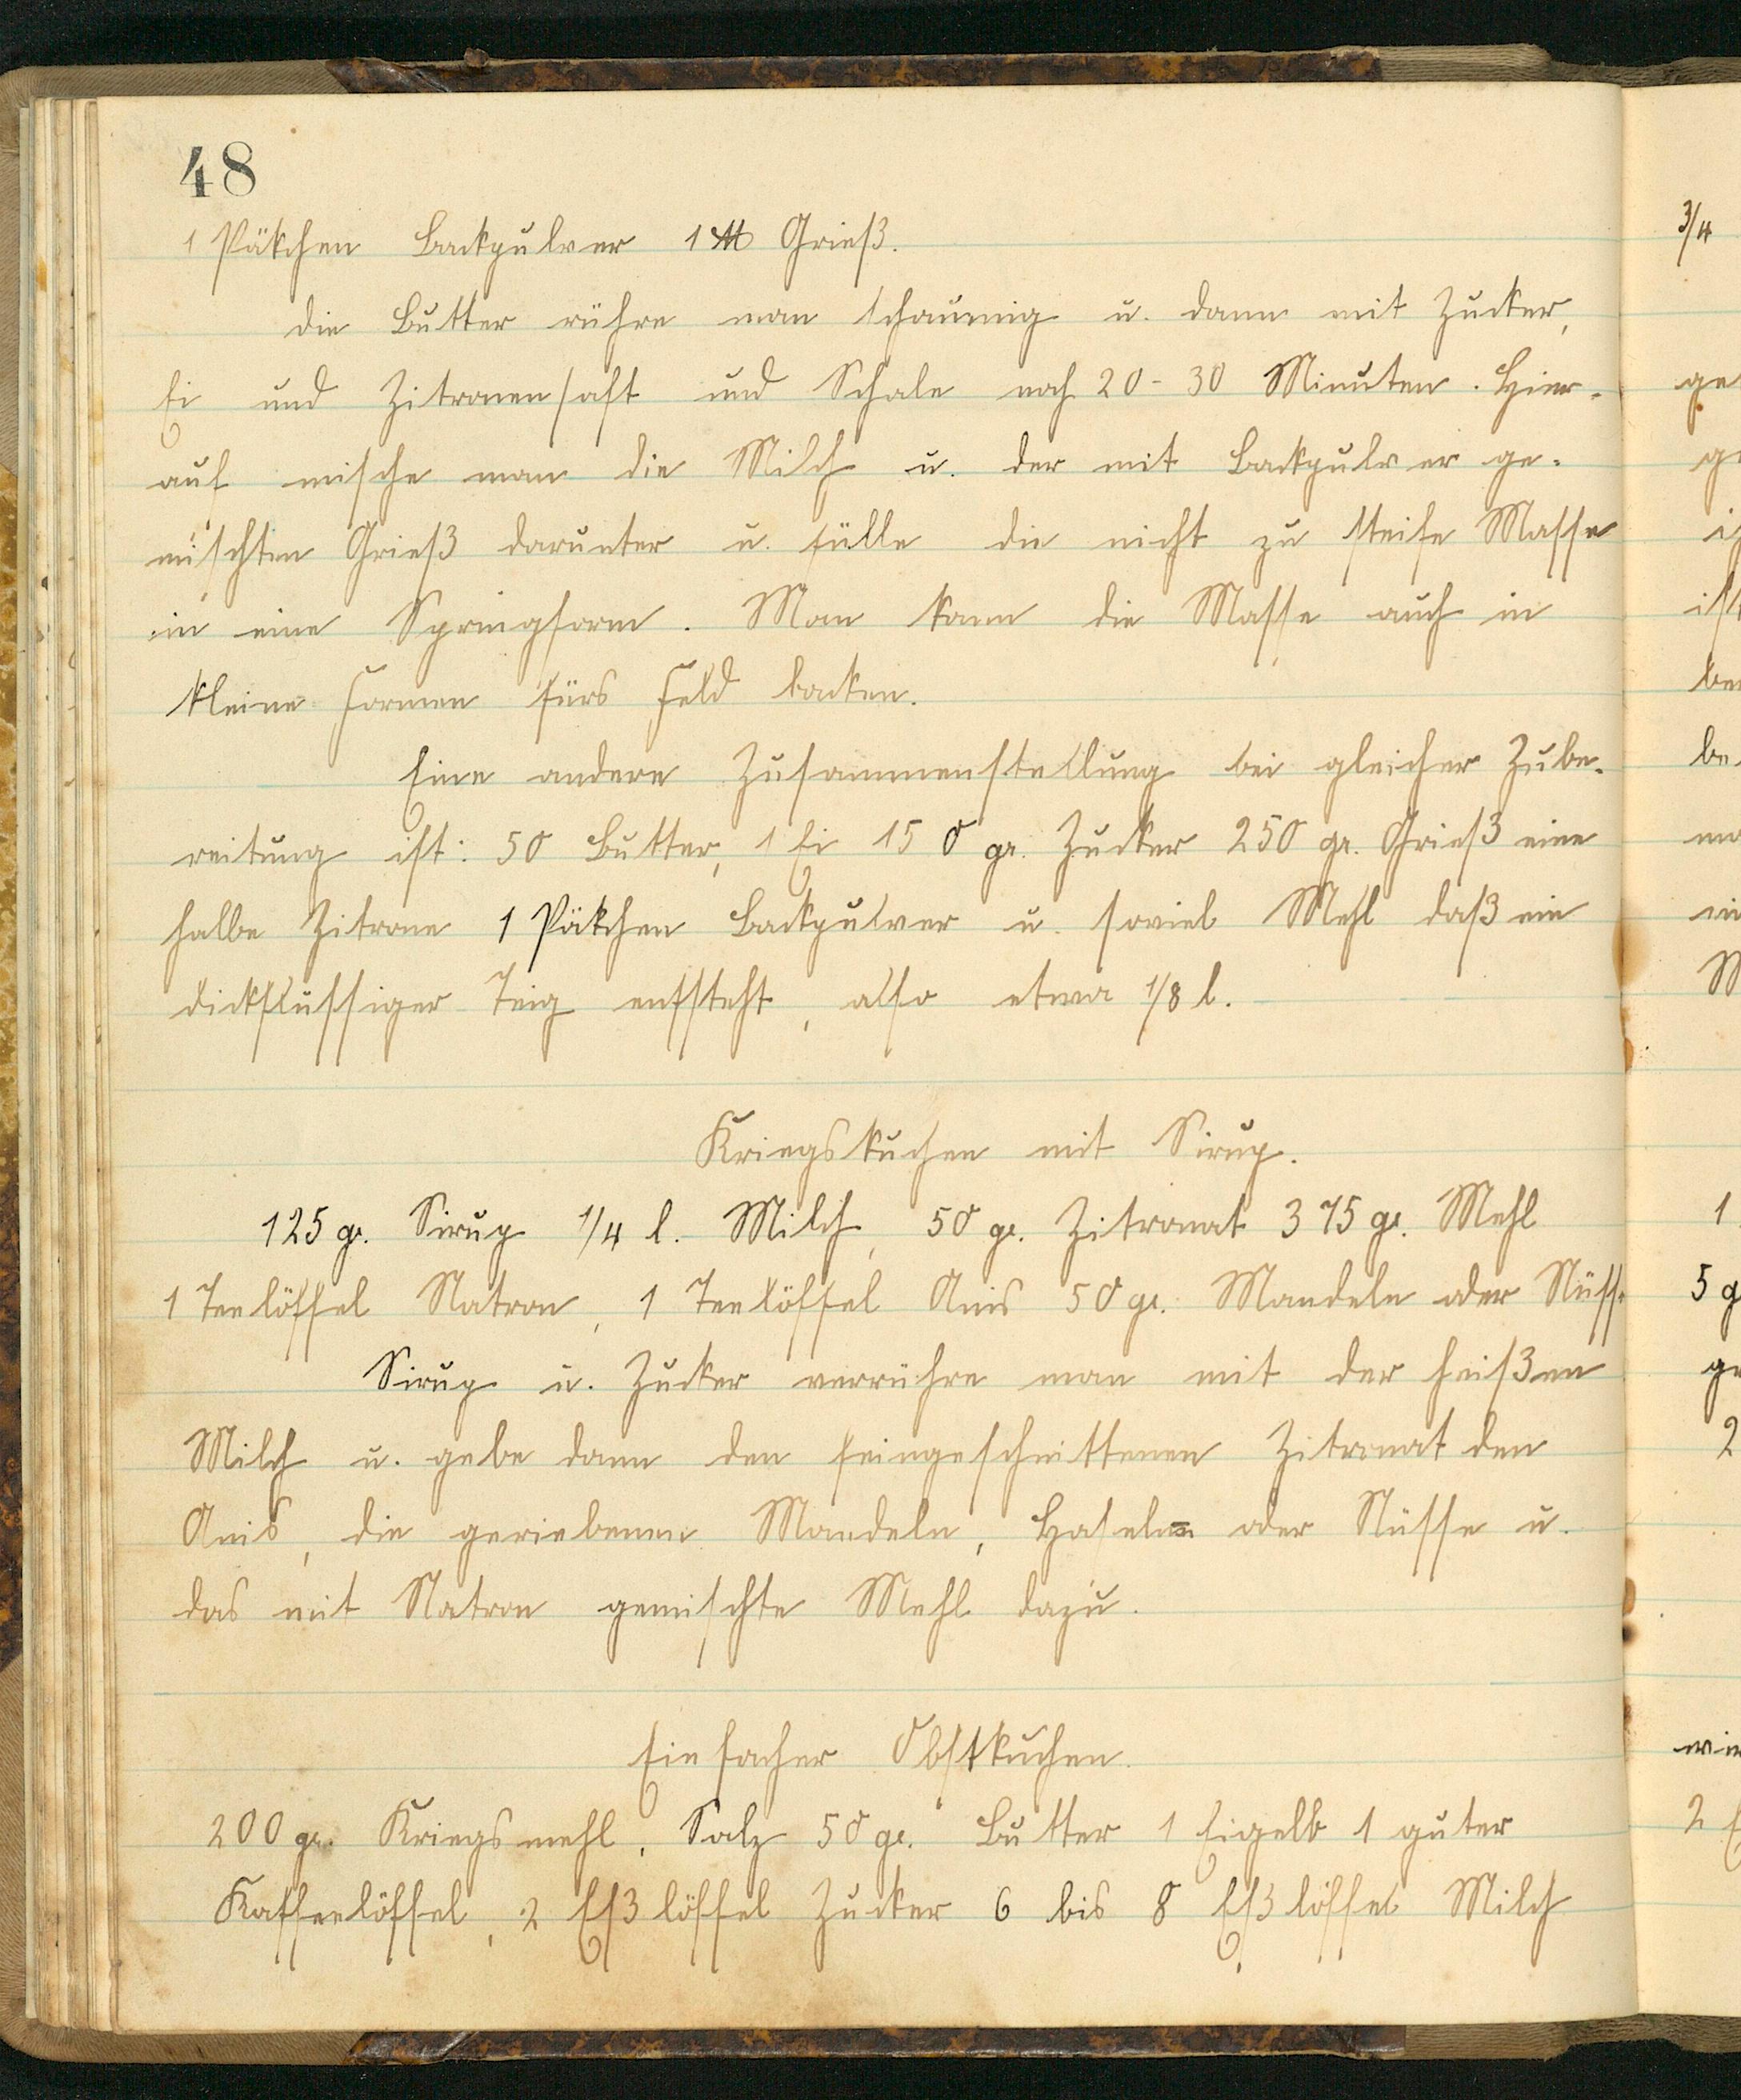 48
1 Päkchen Backpulver 1 ℔ Grieß.
die Butter rühre man schaumig u. dann mit Zucker,
Ei und Zitronensaft und Schale noch 20-30 Minuten. Hier-
auf mische man die Milch u. der mit Backpulver ge-
mischten Grieß darunter u. fülle die nicht zu steife Masse
in eine Springform. Man kann die Masse auch in
kleine Formen fürs Feld backen.
Eine andere Zusammenstellung bei gleicher Zube-
reitung ist: 50 Butter, 1 Ei 150 gr. Zucker 250 gr. Grieß eine
halbe Zitrone 1 Päkchen Backpulver u. soviel Mehl daß ein
dickflüssiger Teig entsteht, also etwa 1/8 l.
Kriegskuchen mit Sirup.
125 gr. Sirup 1/4 l. Milch, 50 gr. Zitronat 375 gr. Mehl
1 Teelöffel Natron, 1 Teelöffel Anis 50 gr. Mandeln oder Nüsse
Sirup u. Zucker verrühre man mit der heißen
Milch u. gebe dann den feingeschnittenen Zitronat den
Anis, die geriebenen Mandeln, Hasel= oder Nüsse u.
das mit Natron gemischte Mehl dazu.
Einfacher Obstkuchen.
200 gr. Kriegsmehl, Salz 50 gr. Butter 1 Eigelb 1 guter
Kaffeelöffel, 2 Eßlöffel Zucker 6 bis 8 Eßlöffel Milch
3/4
ge
be
1
5 g
2
2 E